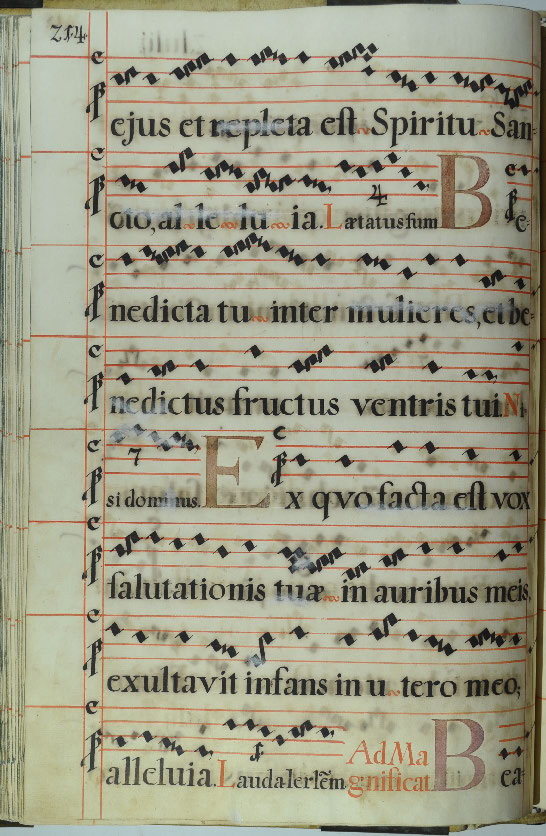 214
ejus et repleta est Spiritu San-
cto, al le lu ia. Lætatus sum Be-
nedicta tu inter mulieres, et be-
nedictus fructus ventris tui. Ni-
4
si dominus. Ex qvo facta est vox
7
salutationis tuæ in auribus meis,
exultavit infans in u tero meo,
alleluia. Lauda Ierlẽm. Ad Magnificat Bea-